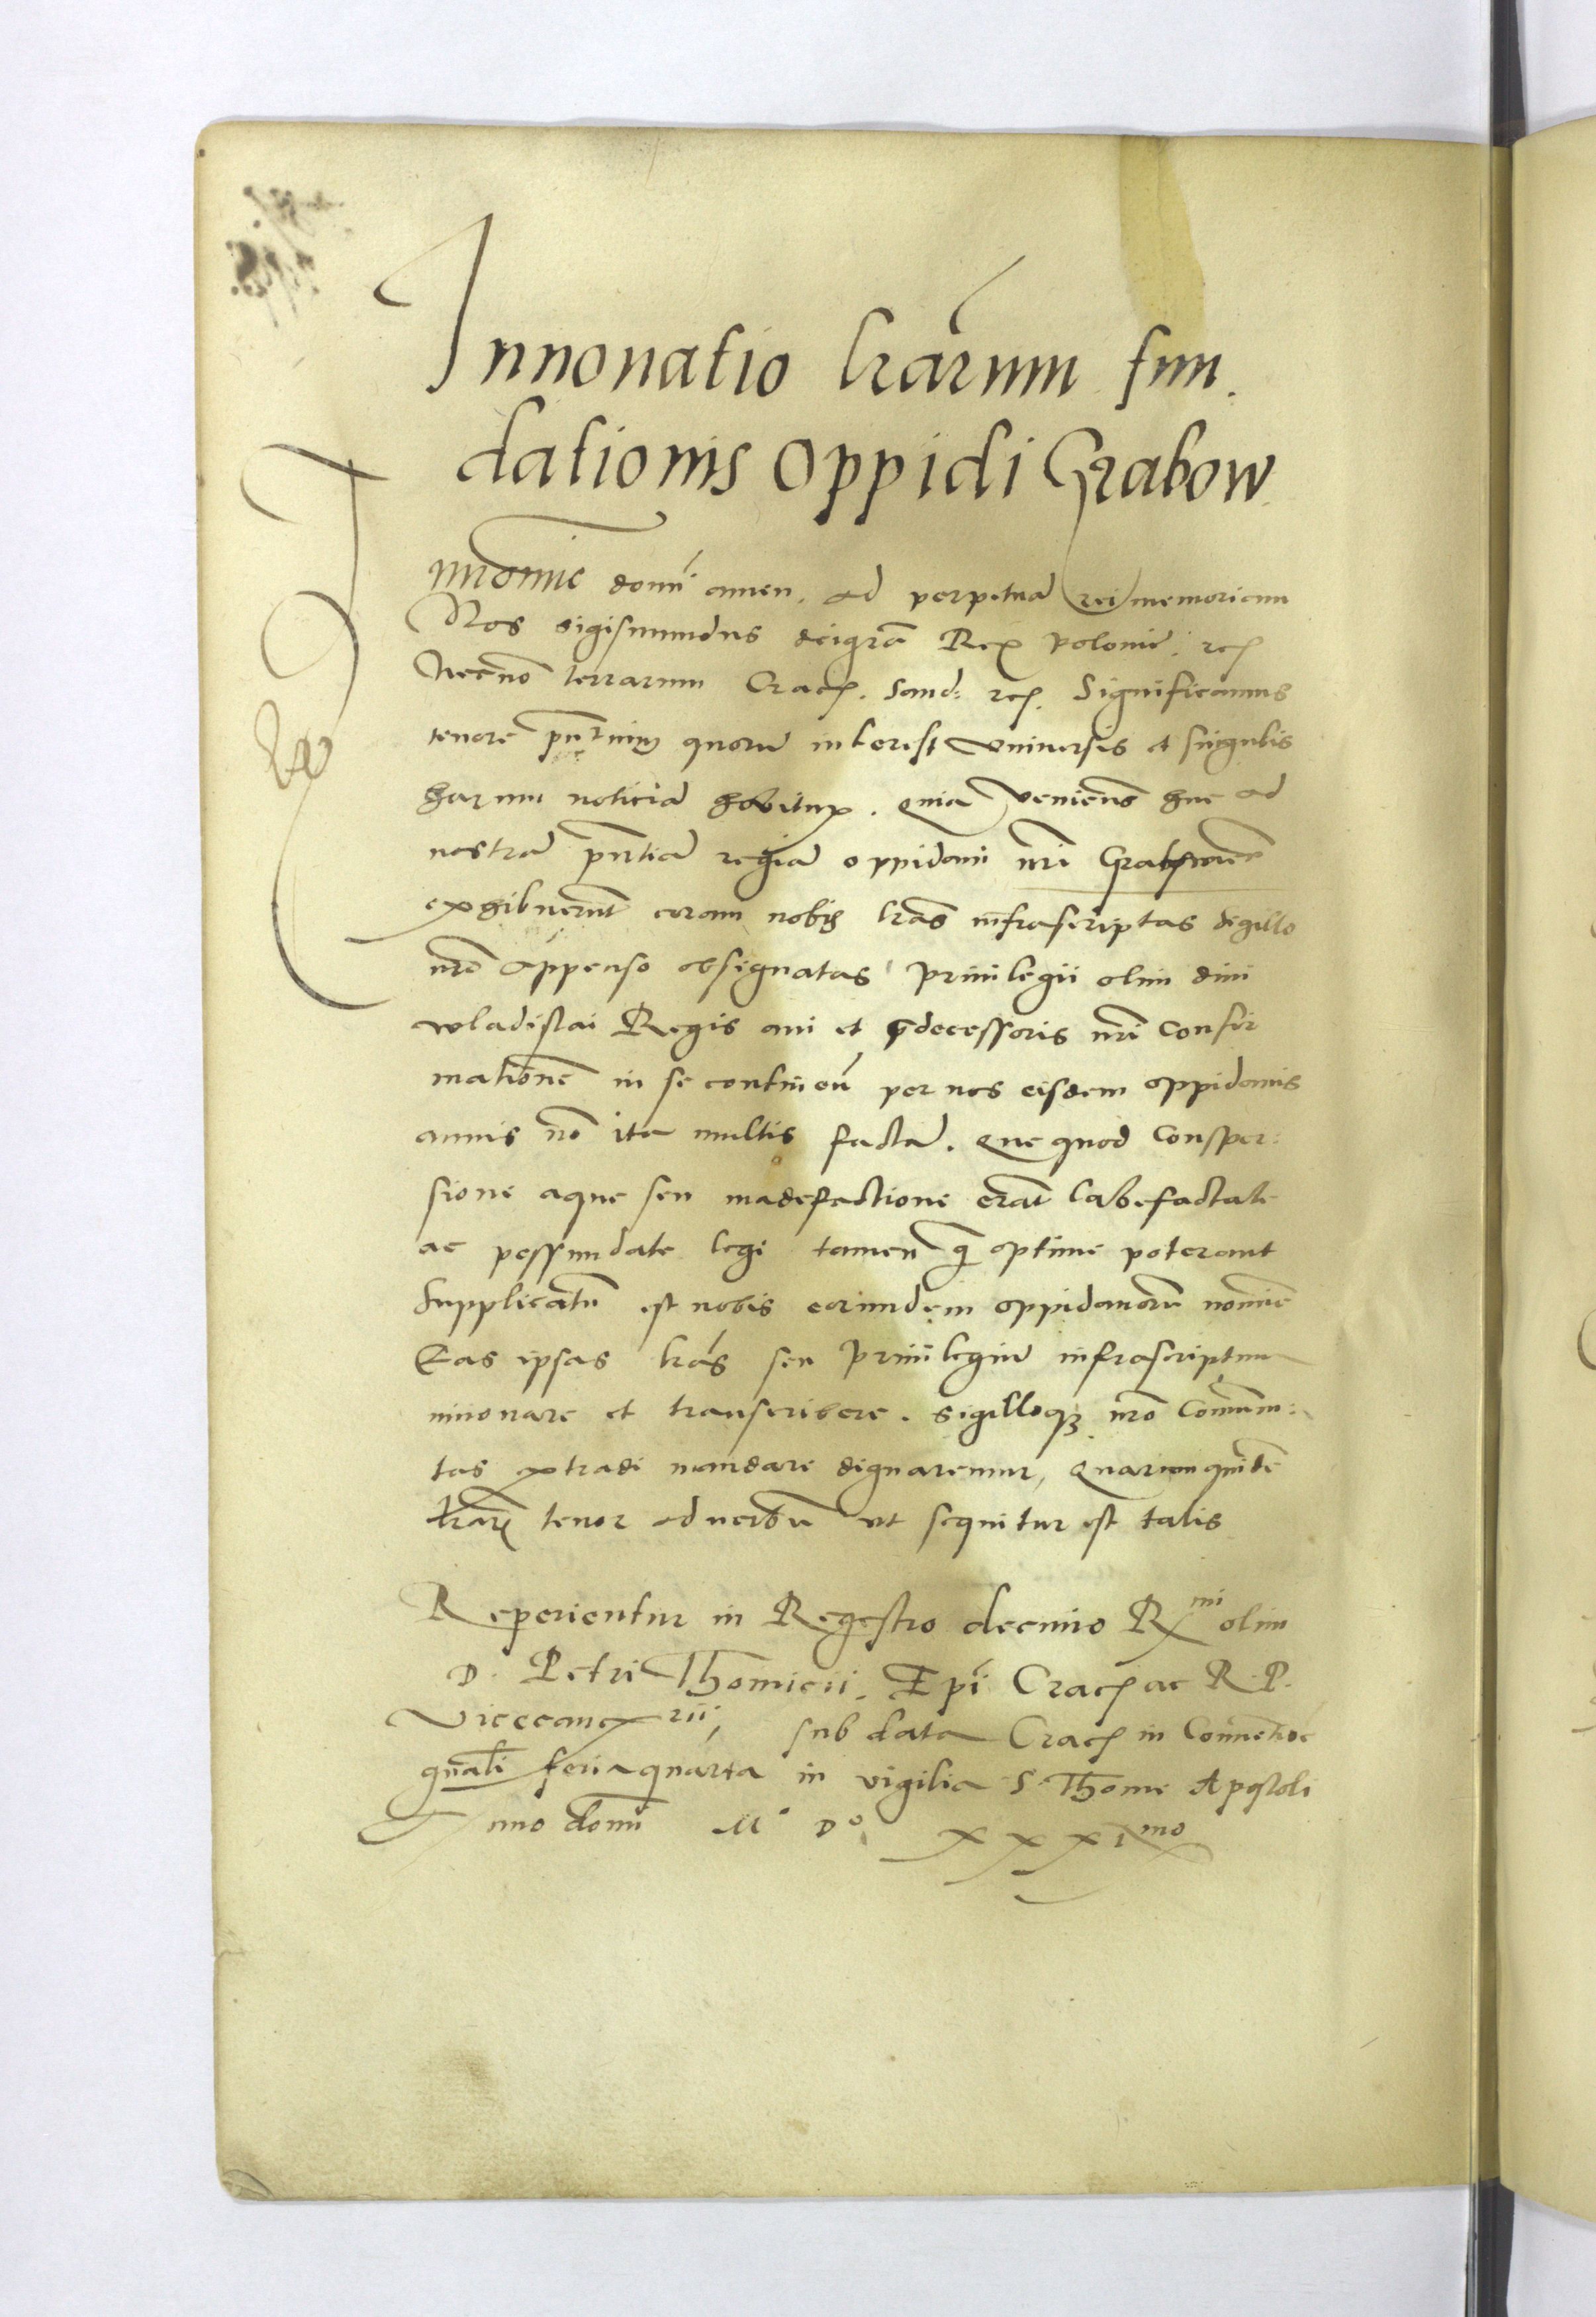 Innouatio lrarum fun.
dationis oppidi Grabow
In nomine domi amen. ad perpetua rei memoriam
Nos Sigismundus dei gra Rex Polonie. rc
Necno terrarum Crac. Sand: rc. Significamus
tenore pntium quoru interest vniuersis et singulis
harum noticia habituris. Quia venientes huc ad
nostra pntia regia oppidani nri Grabouien
exhibuerunt coram nobis lras infrascriptas sigillo
nro appenso obsignatas priuilegii olim diui
Wladislai Regis aui et predecessoris nri confir
matione in se continen per nos eisdem oppidanis
annis no ita multis facta. Que quod consper:
sione aque seu madefactione erant labefactate
ac pessundate legi tamen q optime poterant
Supplicatu est nobis eorundem oppidanoru nomine
Eas ipsas lras seu priuilegium infrascriptum
innouare et transcribere. sigilloqz nro Commun:
tas extradi mandare dignaremur, Quarum quide
lrar tenor ad verbu vt sequitur est talis
Reperientur in Regestro decimo Rmi olim
D. Petri Thomicii. Epi Crac ac R. P.
Vicecancrii, sub data Crac in Conuentione
gnali feria quarta in vigilia S. Thome Apostoli
Anno domi Mo Do xxximo